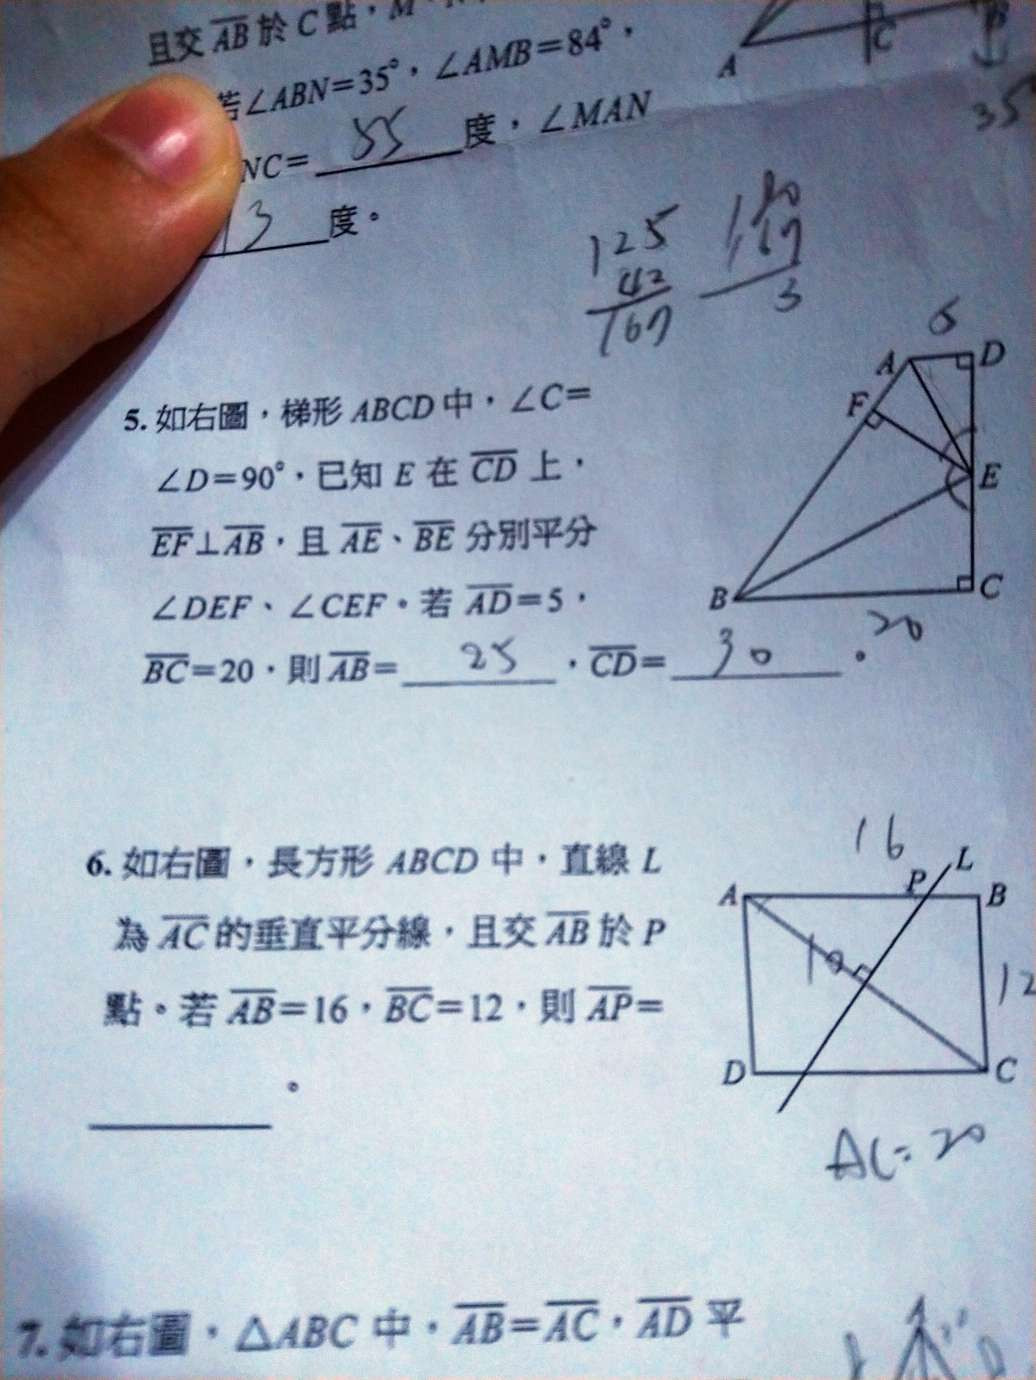 且交 AB 於 C 點，M
A
C
B
若∠ABN=35°，∠AMB=84°，
35
NC= 55 度，∠MAN
13 度。
125
42
167
180
167
3
5
A
D
F
E
B
C
20
5. 如右圖，梯形 ABCD 中，∠C=
∠D=90°，已知 E 在 CD 上，
EF⊥AB，且 AE、BE 分別平分
∠DEF、∠CEF。若 AD=5，
BC=20，則 AB= 25 ，CD= 30 。
16
L
A
P
B
10
12
D
C
AC=20
6. 如右圖，長方形 ABCD 中，直線 L
為 AC 的垂直平分線，且交 AB 於 P
點。若 AB=16，BC=12，則 AP=
。
7. 如右圖，△ABC 中，AB=AC，AD 平
A